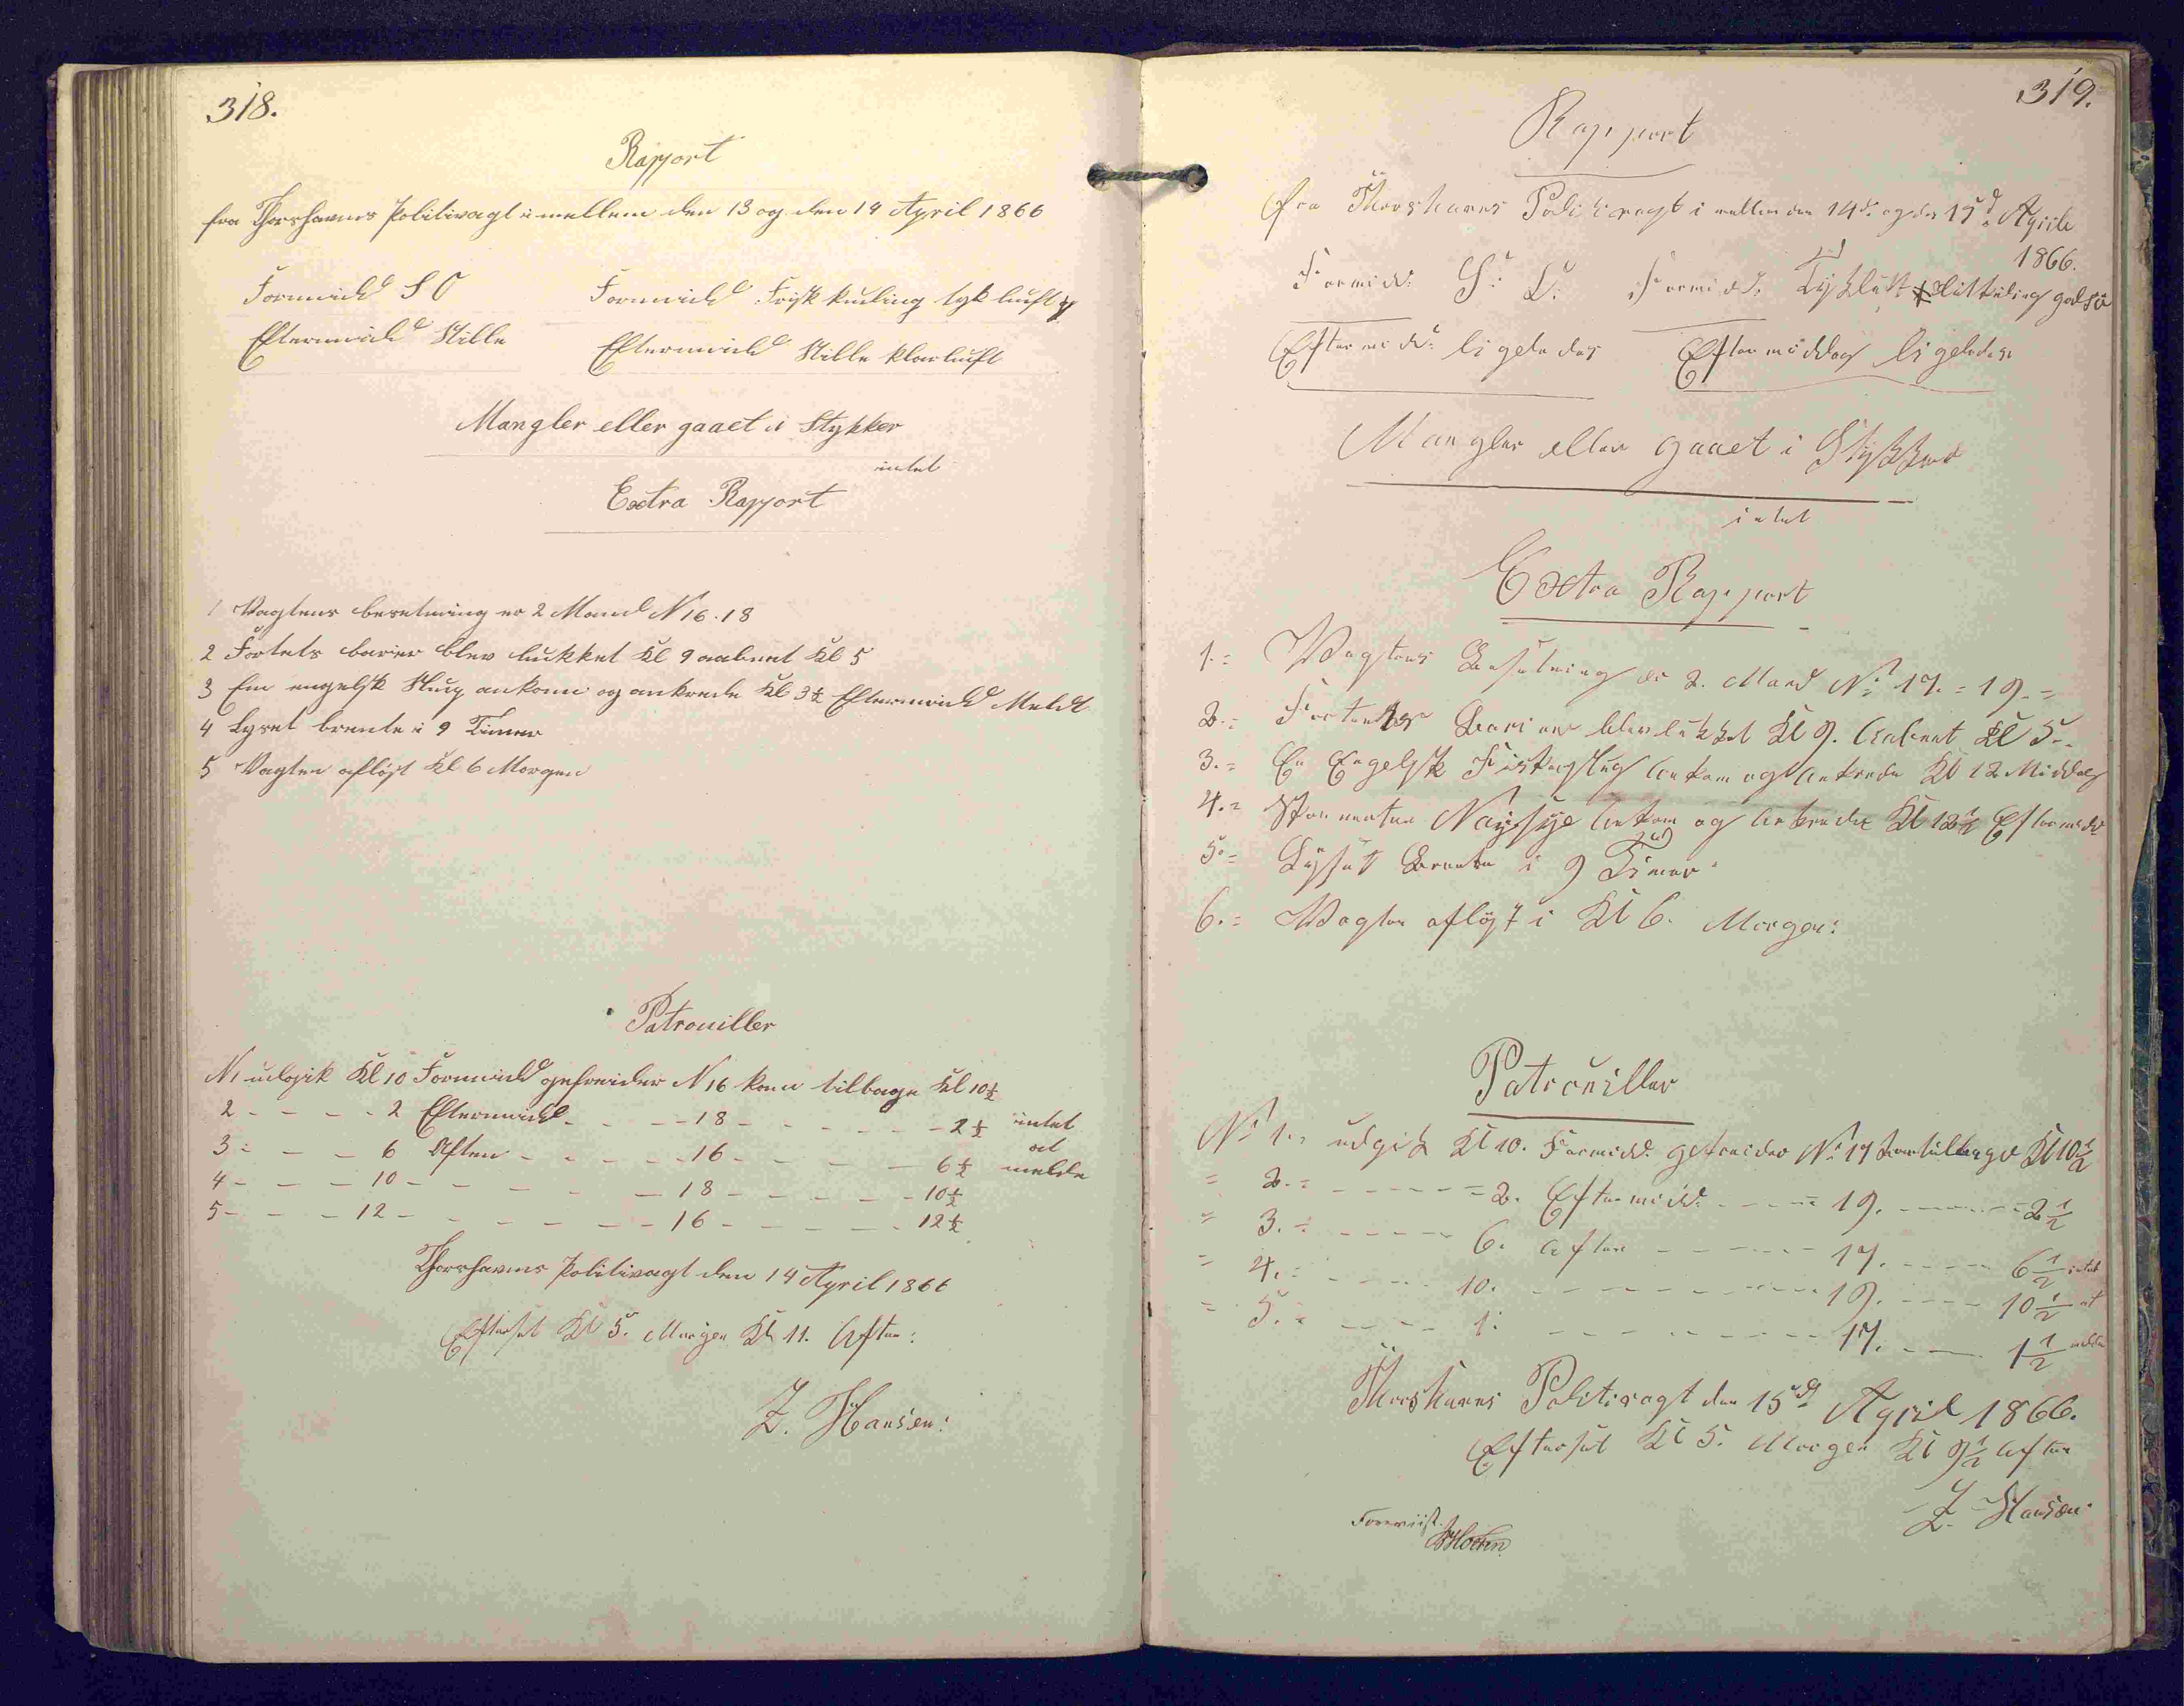 318.
Rapport
fra Thorshavns Politivagt imellem den 13 og den 14 April 1866
Formidd S O Formidd Frisk kuling tyk luft
Eftermidd Stille Eftermidd Stille klar luft
Mangler eller gaaet i Stykker
intet
Extra Rapport
1 Vagtens besetning er 2 Mand N 16. 18
2 Fortets barier blev lukket Kl 9 aabnet Kl 5
3 En engelsk Slup ankom og ankrede Kl 3½ Eftermidd Meldt
4 Lyset brente i 9 Timer
5 Vagten afløst Kl 6 Morgen
Patrouiller
N 1 udgik Kl 10 Formidd gefreider N 16 kom tilbage Kl 10½
2 - - - - 2 Eftermidd - - - 18 - - - - - - 2½ intet
3 - - - 6 Aften - - - - 16 - - - - - 6½ at melde
4 - - - 10 - - - - - 18 - - - - - 10½
5 - - - 12 - - - - - - 16 - - - - - 12½
Thorshavns Politivagt den 14 April 1866
Efterset Kl 5. Morgen Kl 11. Aften:
Z. Hansen:
319.
Rapport
fra Thorshavns Politivagt i mellem den 14d. og den 15d. April
1866.
Formidd: S: O: Formidd. Tyk luft lit kuling god sø
Eftermidd: ligeledes Eftermiddag ligeledes
Mangler eller gaaet i Stykker
intet
Extra Rapport
1.= Vagtens Besetning er 2. Mand No 17. = 19. =
2.= Fortets Barier blev lukket Kl 9. Aabnet Kl 5.
3.= En Engelsk Fiskeslup Ankom og Ankrede Kl 12 Middag
4.= Ankom og Ankrede Kl 12½ Eftermidd
5.= Lyset Brente i 9 Timer
6.= Vagten afløst i Kl 6. Morgen:
Patrouiller
No 1. udgik Kl 10. Formidd: gefreider No 17 kom tilbage Kl 10½
= 2. = - - - - - = 2. Eftermidd: - - - - 19. - - - - 2½
= 3. = - - - - - 6. Aften - - - - - 17. - - - - 6½ intet
= 4. = - - - - 10. - - - - - - - - 19. - - - 10½ at
= 5. = - - - - 1. - - - - - - - - 17. - - - 1½ melde
Thorshavns Politivagt den 15d April 1866.
Efterset Kl 5. Morgen Kl 9½ Aften
Z. Hansen
Foreviist.